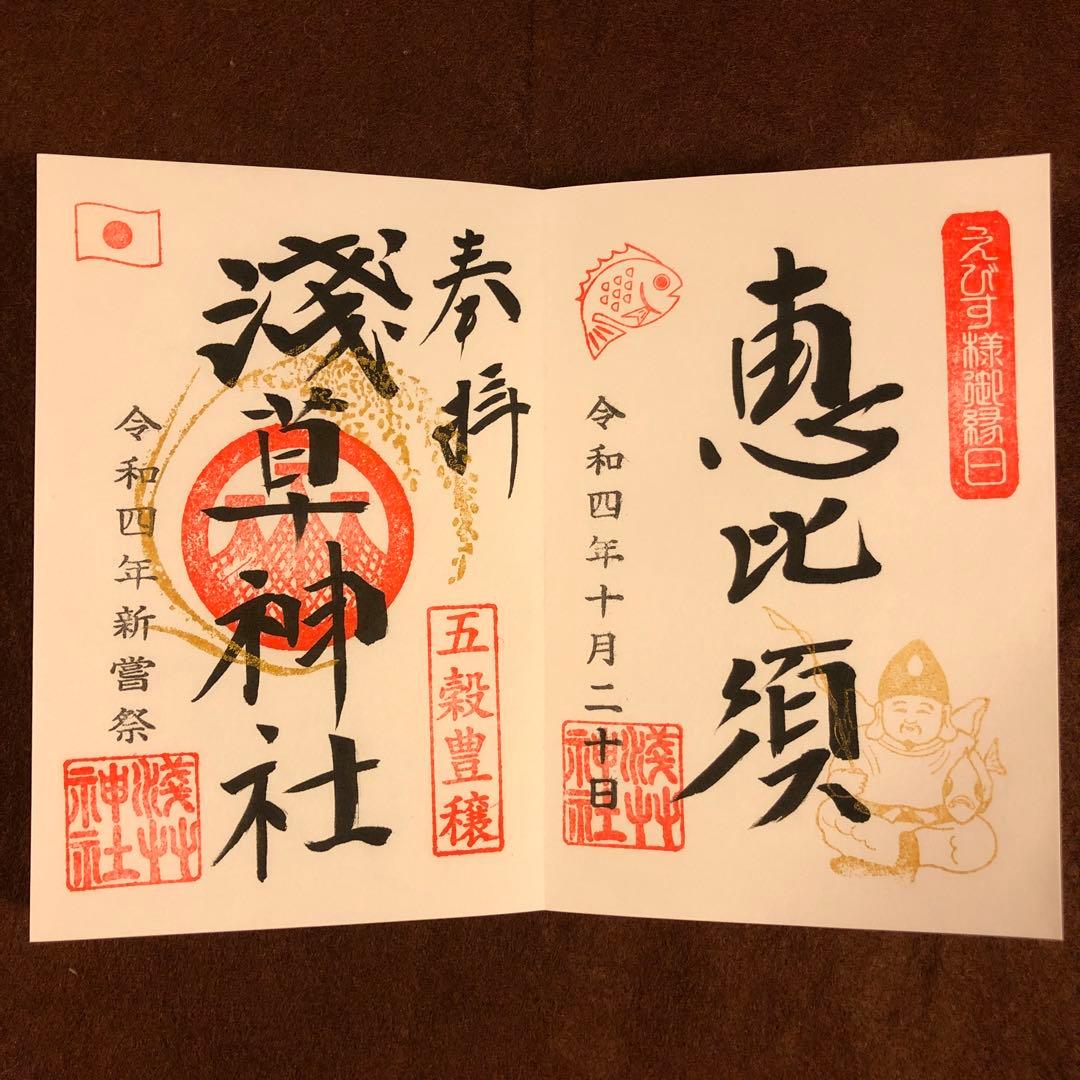 えびす様御縁日
恵比須
令和四年十月二十日
淺草神社
奉拝
五穀豊穣
淺草神社
令和四年新嘗祭
淺草神社